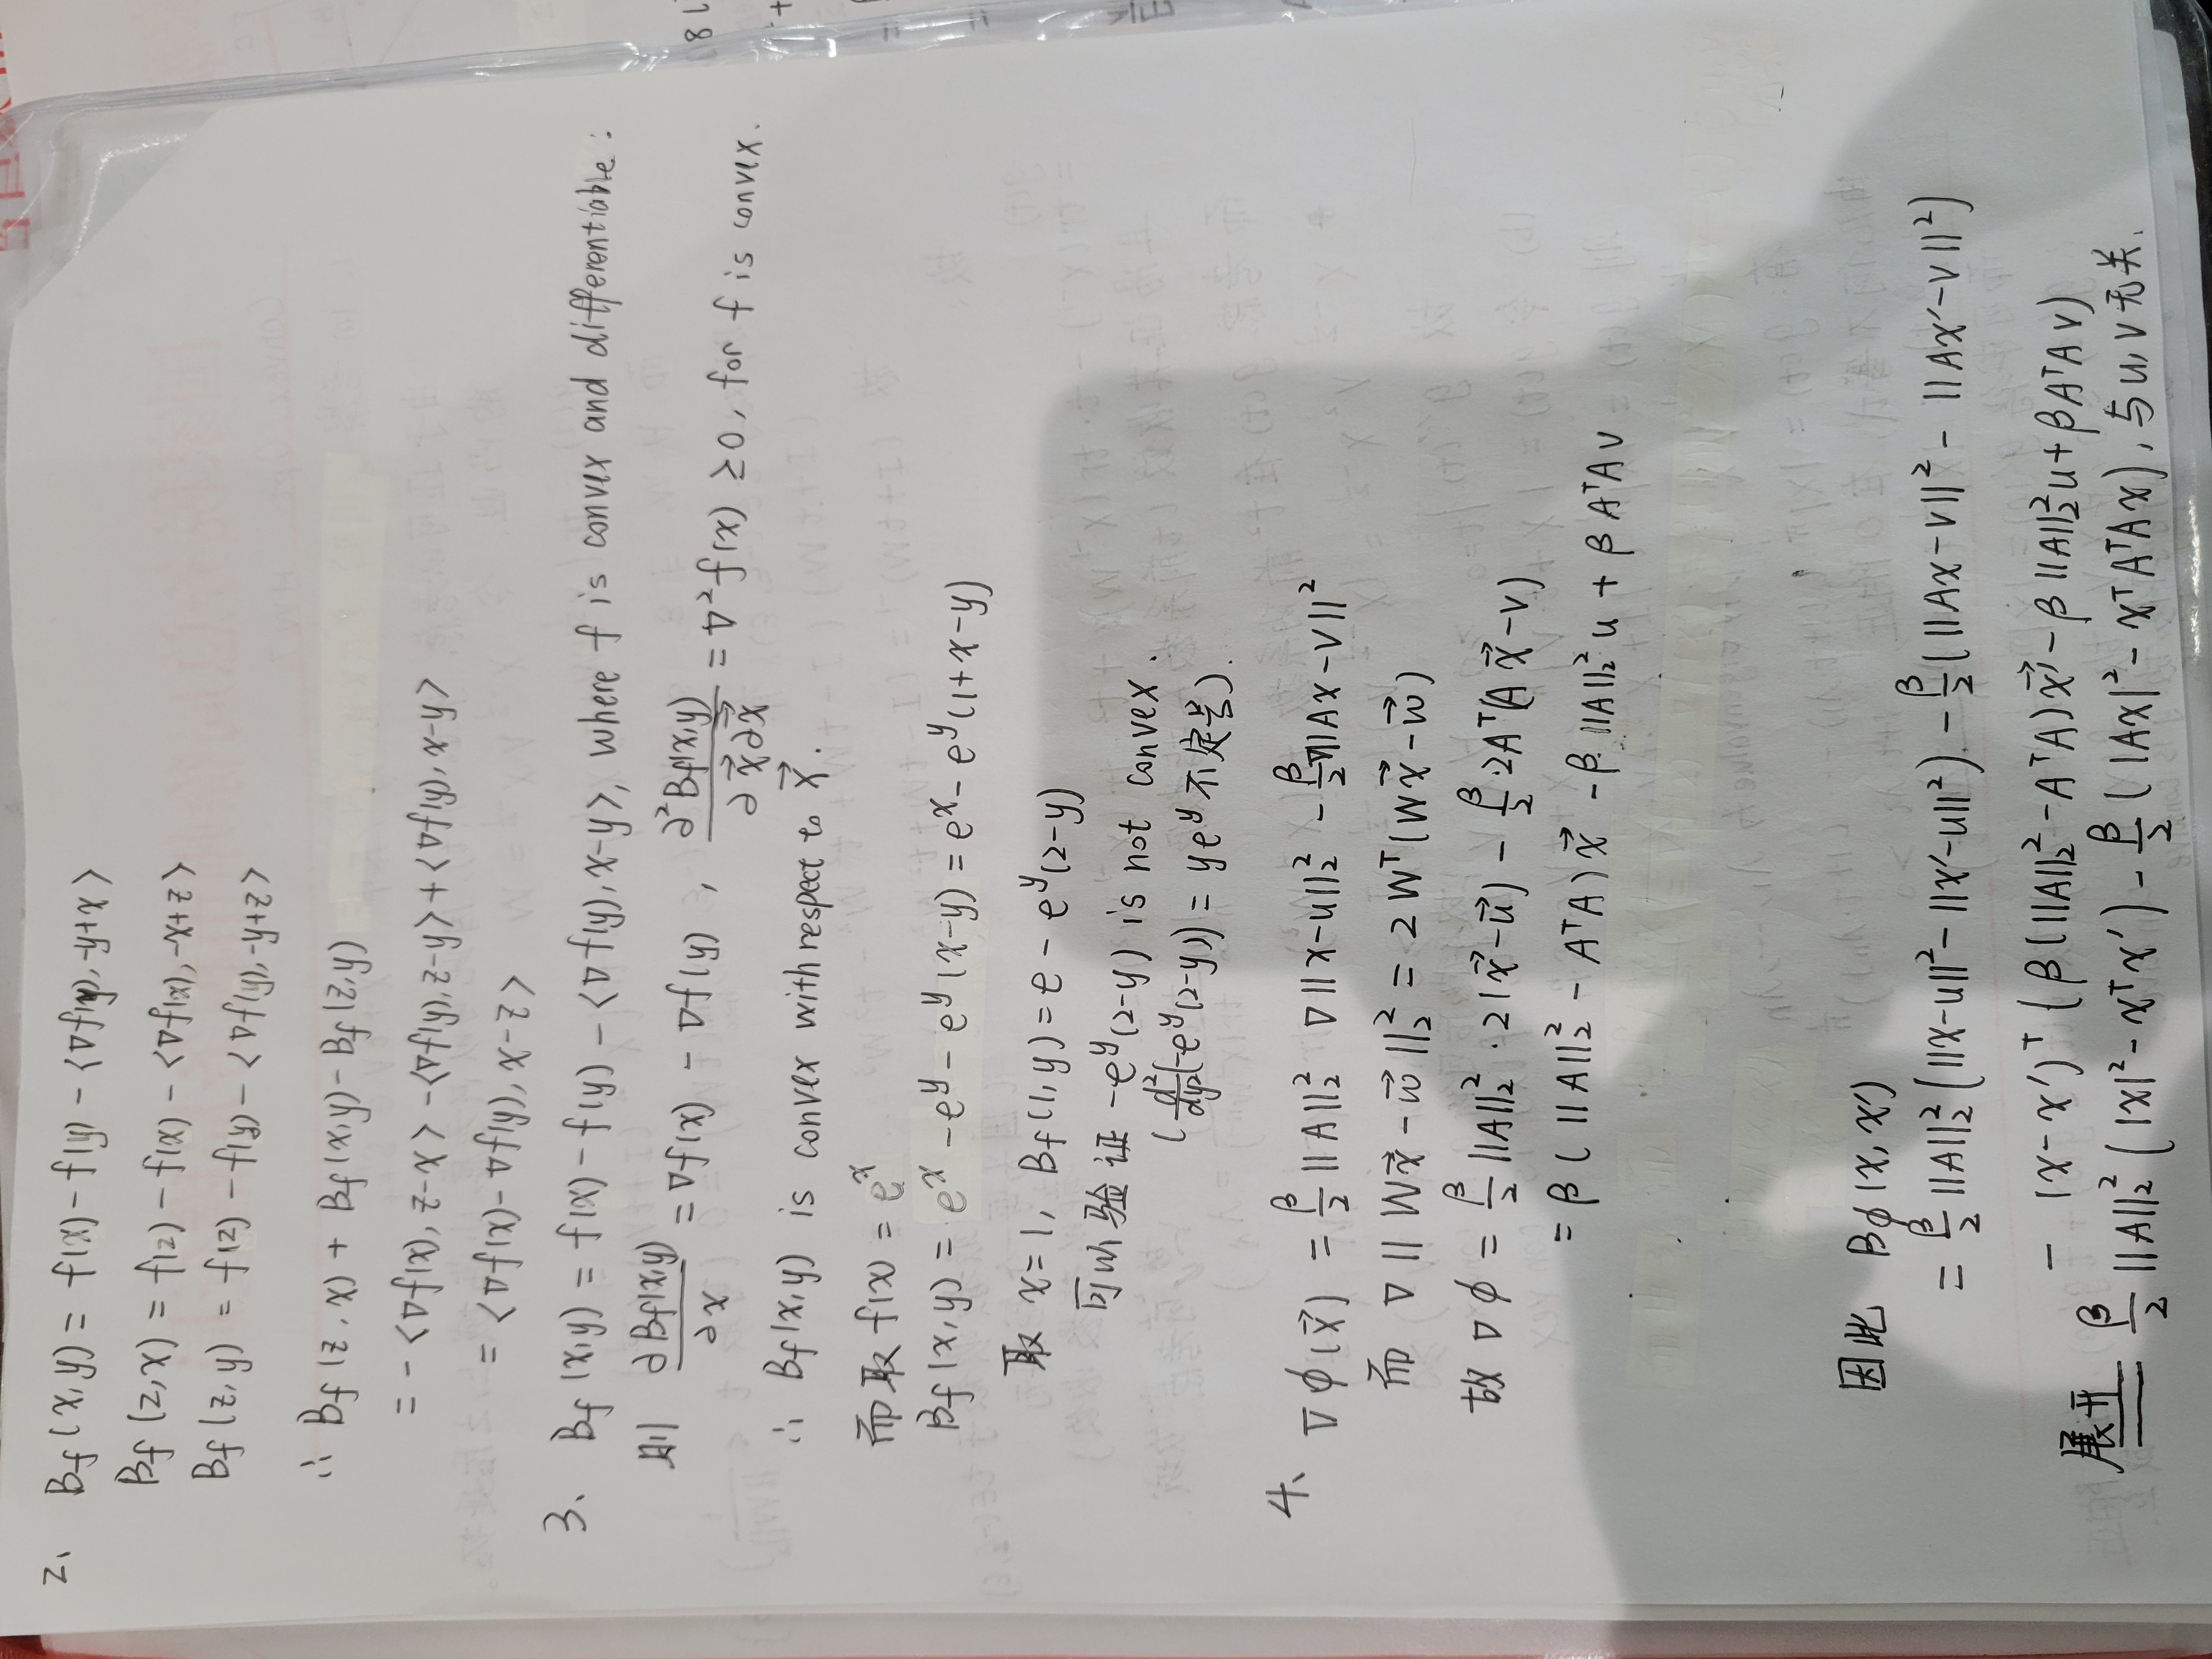 2、 B_f(x,y) = f(x) - f(y) - <∇f(y), -y+x>
B_f(z,x) = f(z) - f(x) - <∇f(x), -x+z>
B_f(z,y) = f(z) - f(y) - <∇f(y), -y+z>
∴ B_f(z,x) + B_f(x,y) - B_f(z,y)
= - <∇f(x), z-x> - <∇f(y), z-y> + <∇f(y), x-y>
= <∇f(x) - ∇f(y), x-z>
3、 B_f(x,y) = f(x) - f(y) - <∇f(y), x-y>, where f is convex and differentiable:
则 ∂B_f(x,y)/∂x = ∇f(x) - ∇f(y) , ∂²B_f(x,y)/∂x⃗∂x⃗ = ∇²f(x) ≥0, for f is convex.
∴ B_f(x,y) is convex with respect to x⃗.
而取 f(x) = e^x
B_f(x,y) = e^x - e^y - e^y(x-y) = e^x - e^y(1+x-y)
取 x=1, B_f(1,y) = e - e^y(2-y)
可以验证 -e^y(2-y) is not convex.
(d²/dy²(-e^y(2-y)) = ye^y 不定号).
4、 ∇φ(x⃗) = β/2 ||A||₂² ∇||x-u||₂² - β/2 ∇||Ax-v||²
而 ∇||Wx⃗-w⃗||₂² = 2W^T(Wx⃗-w⃗)
故 ∇φ = β/2 ||A||₂² · 2(x⃗-u⃗) - β/2 · 2A^T(Ax⃗-v)
= β(||A||₂² - A^TA)x⃗ - β||A||₂²u + βA^TAv
因此 B_φ(x,x')
= β/2 ||A||₂² (||x-u||² - ||x'-u||²) - β/2 (||Ax-v||² - ||Ax'-v||²)
- (x-x')^T (β(||A||₂² - A^TA)x⃗' - β||A||₂²u + βA^TAv)
展开 = β/2 ||A||₂² (|x|² - x^Tx') - β/2 (|Ax|² - x^TA^TAx), 与u,v无关.